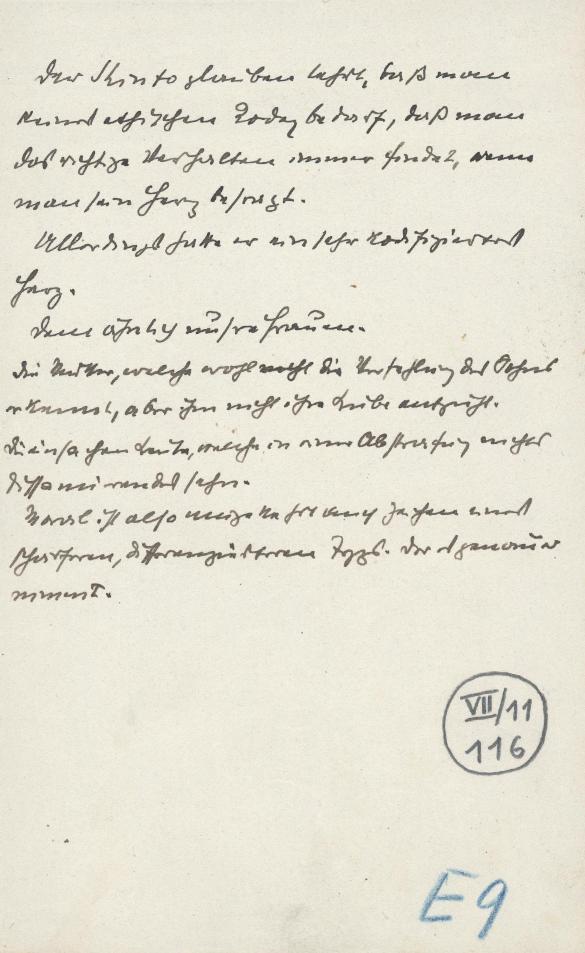 Der Shintoglauben lehrt, daß man
keines ethischen Kodex bedarf, daß man
das richtige Verhalten immer findet, wenn
man sein Herz befragt.
Allerdings hatte er ein sehr kodifiziertes
Herz.
Dem ähnlich unsre Frauen.
Die Mutter, welche wohl die Verfehlung des Sohnes
erkennt, aber ihm nicht ihre Liebe entzieht.
Die einfachen Leute, welche in einer Abstrafung nichts
diffamirendes sehn.
Moral ist also umgekehrt auch Zeichen eines
schärferen, differenzierteren Typs. Der es genauer
nimmt.
VII/11
116
E9